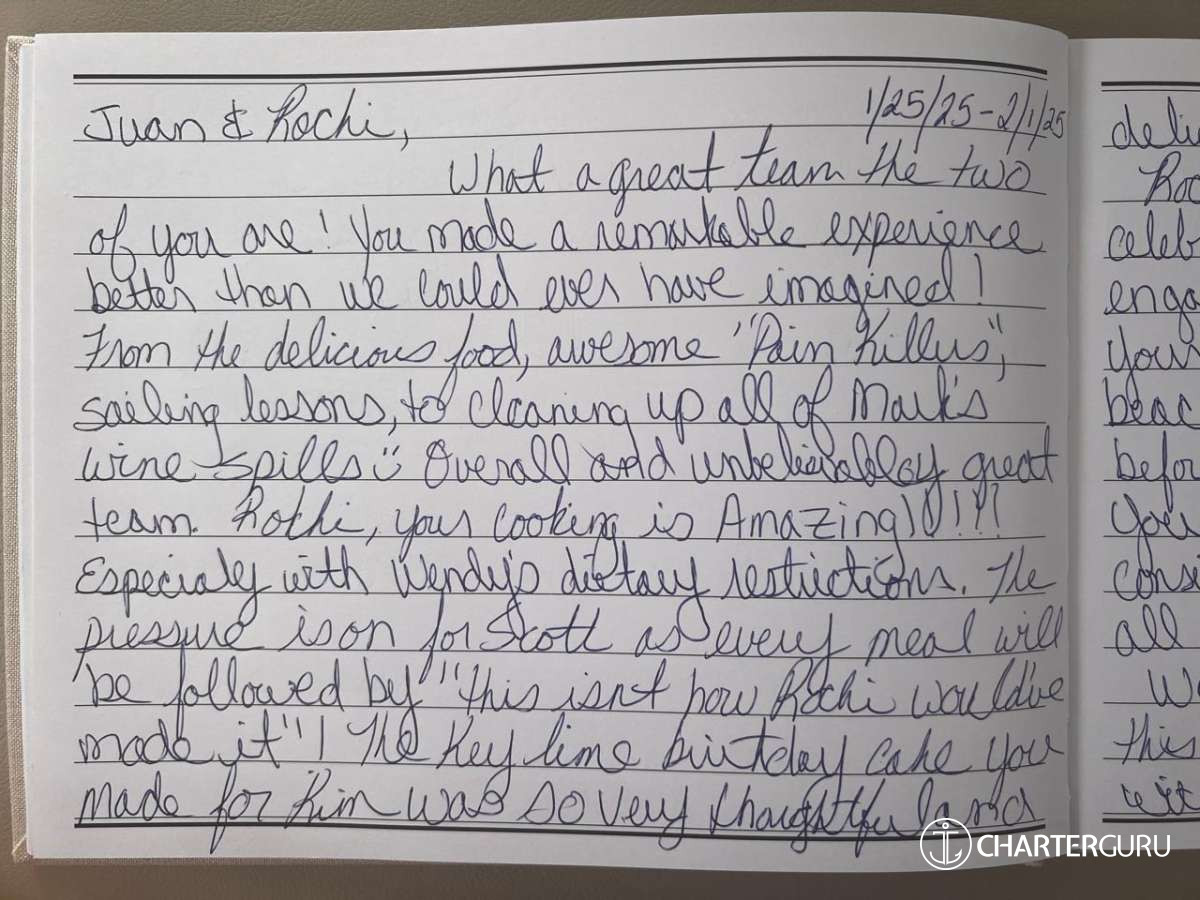 Juan & Rochi,
1/25/25 - 2/1/25
What a great team the two
of you are! You made a remarkable experience
better than we could ever have imagined!
From the delicious food, awesome "Pain Killers",
sailing lessons, to cleaning up all of Mark's
wine spills :) Overall and unbelievabley great
team. Rochi, your cooking is Amazing!!!!!
Especialy with Wendy's dietary restrictions. The
pressure is on for Scott as every meal will
be followed by "this isnt how Rochi would've
made it"! The Key lime birtday cake you
made for Kim was so very thoughtful and
deli
Roc
celeb
enga
your
beac
befor
you
cons
all
We
this
wit
CHARTERGURU